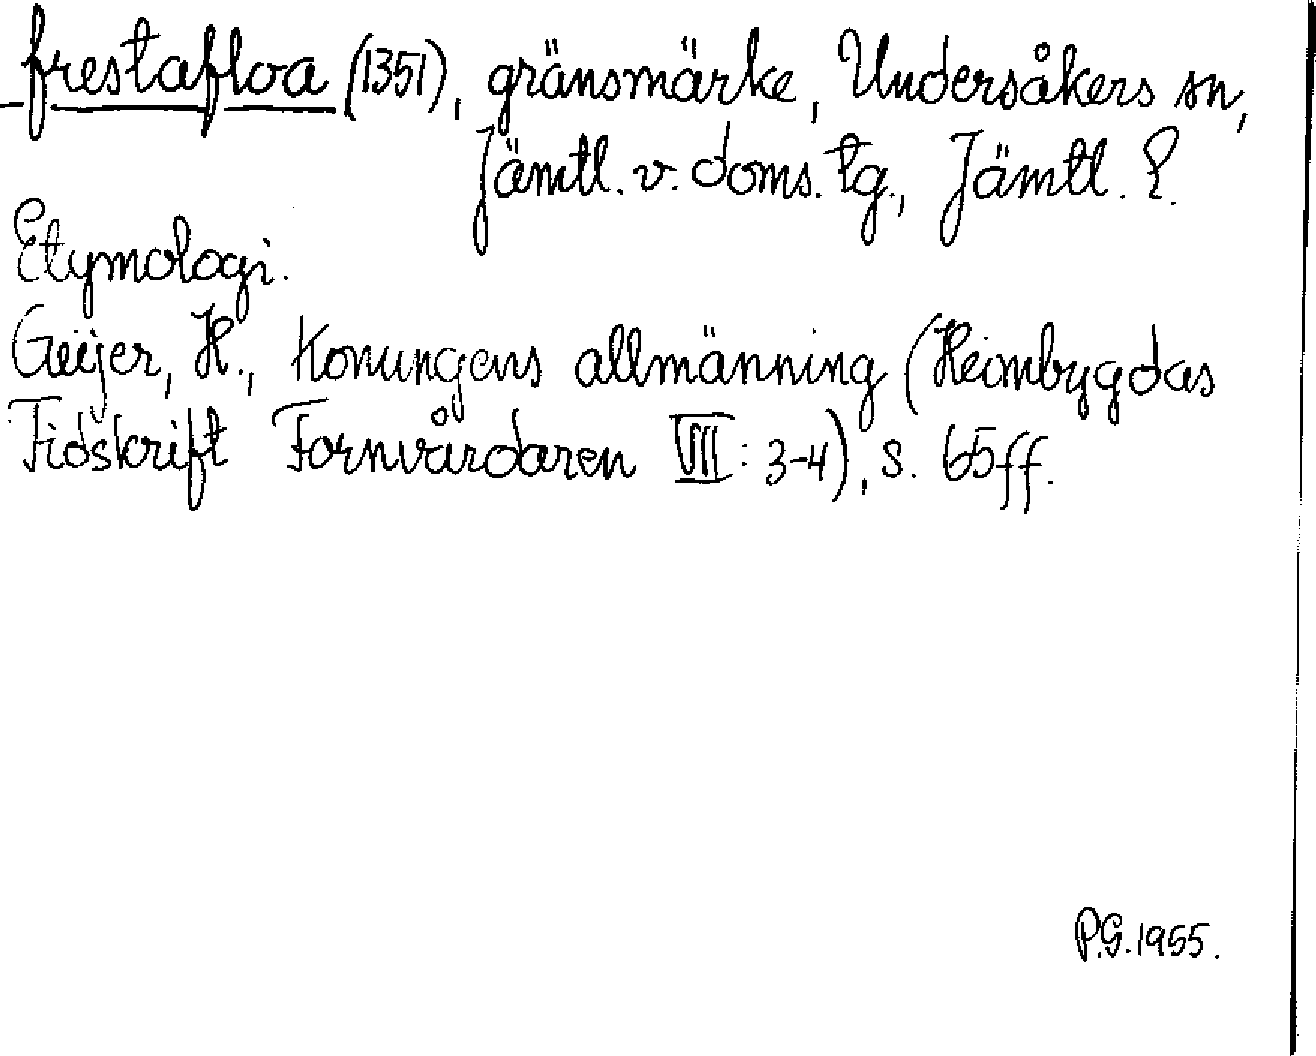 frestafloa (1351), gränsmärke, Undersåkers sn,
Jämtl. v. doms. tg., Jämtl. l.
Etymologi.
Geijer, H., Konungens allmänning (Heimbygdas
Tidskrift Fornvårdaren VIII: 3-4), s. 65ff.
P.G. 1955.